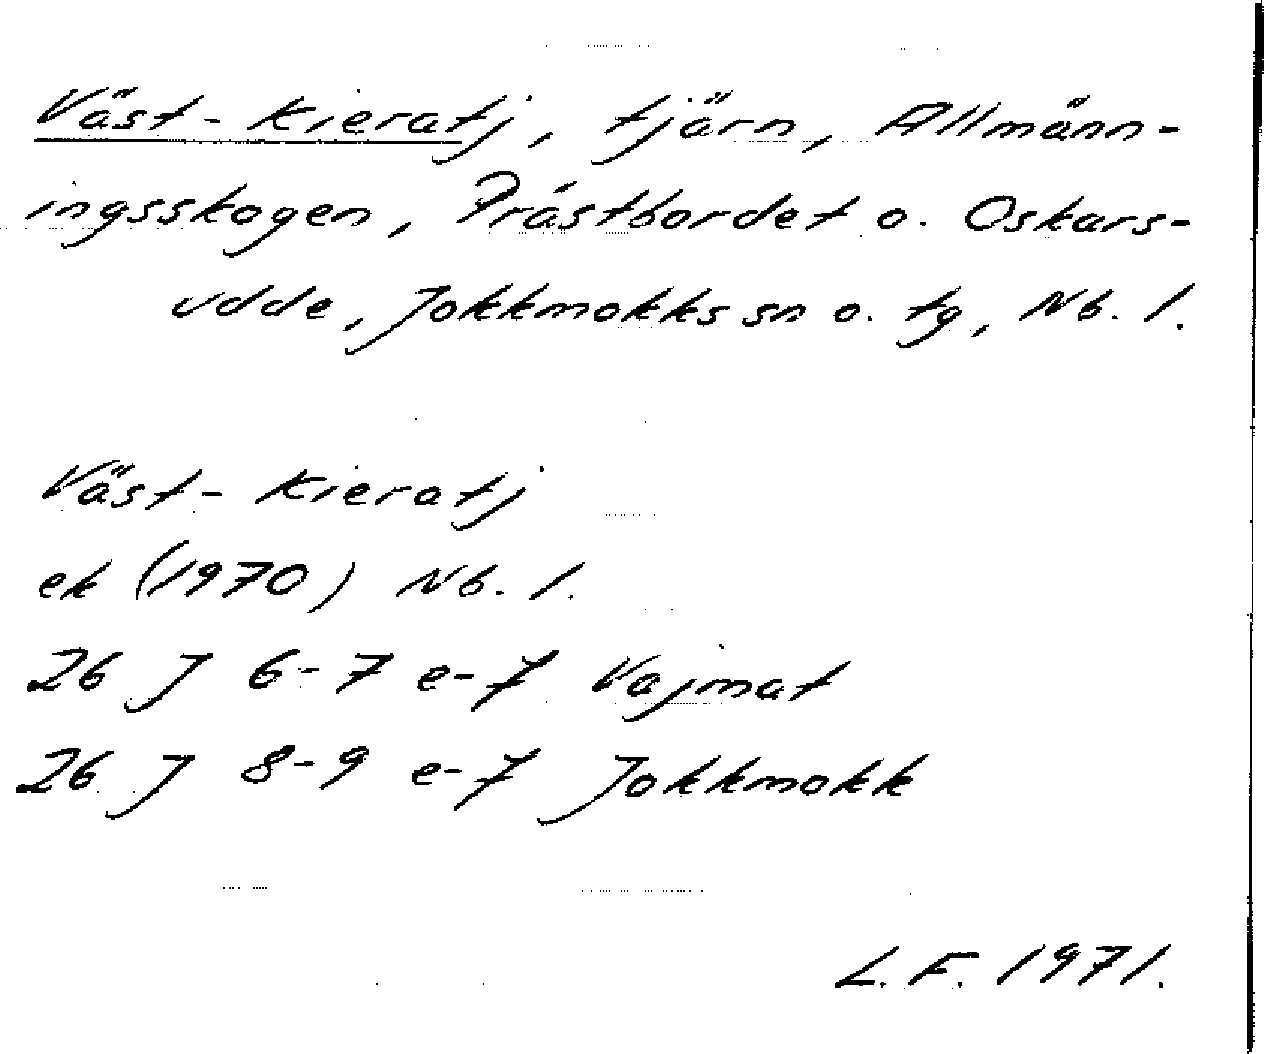 Väst-Kieratj, tjärn, Allmänn-
ingsskogen, Prästbordet o. Oskars-
udde, Jokkmokks sn o. tg, Nb. l.
Väst-Kieratj
ek (1970) Nb. l.
26 J 6-7 e-7 Vajmat
26 J 8-9 e-7 Jokkmokk
L.F. 1971.